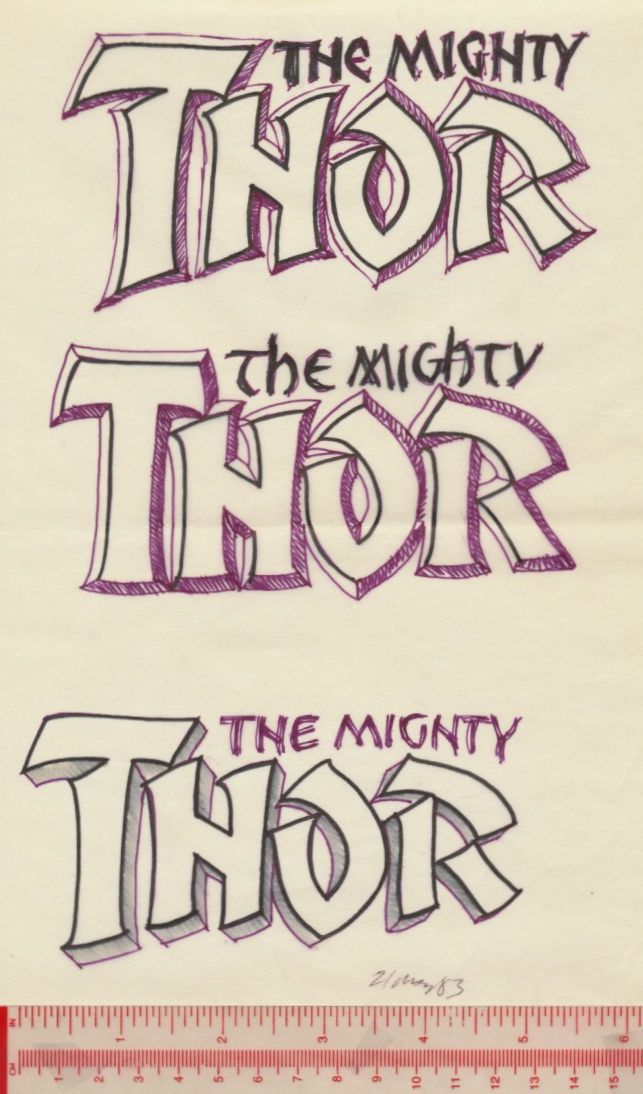 THE MIGHTY
THOR
The MIGhTY
THOR
THE MIGHTY
THOR
21 May 83
IN 1 2 3 4 5 6
CM 1 2 3 4 5 6 7 8 9 10 11 12 13 14 15